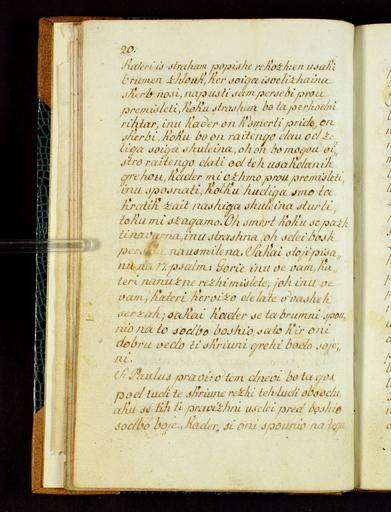 20.
Kateri is straham popishe rekozhien usaki
brumen zhlouk, ker soiga isvelizhaina
skerb nosi, napusti sam persebi prou
premisleti, koku strashan bo ta perhodni
rihtar, inu kader on k smerti pride, on
skerbi, koku bo on raitengo dau od ze
liga soiga shuleina, oh on bo mogou si
stro raitengo dati od teh usakdanih
grehou, kader mi ozhmo prou premisleti,
inu sposnati, kolku hudiga smo ta
kratik zait nashiga shuleina sturli,
toku mi szagamo. Oh smert koku se
navarna, inu strashna, oh selei bosh
nausmilena. Sakai stoji pisa„
nu na 17. psalm: Gorie inu ve vam, ka„
teri nanuzne rezhi mislete, joh inu ve
vam, kateri kervizo delate v vasheh
serzah; sakai kader se ta brumni spou„
nio na to sodbo boshio, sato kir oni
dobru vedo ti skriuni grehi bodo soje„
ni.
S. Paulus pravi: v tem dnevi bo ta gos„
pod tudi te skriune rezhi teh ludi obsodu,
aku se tih ti pravizhni uselei pred boshio
sodbo boje, kader, si oni spounio na